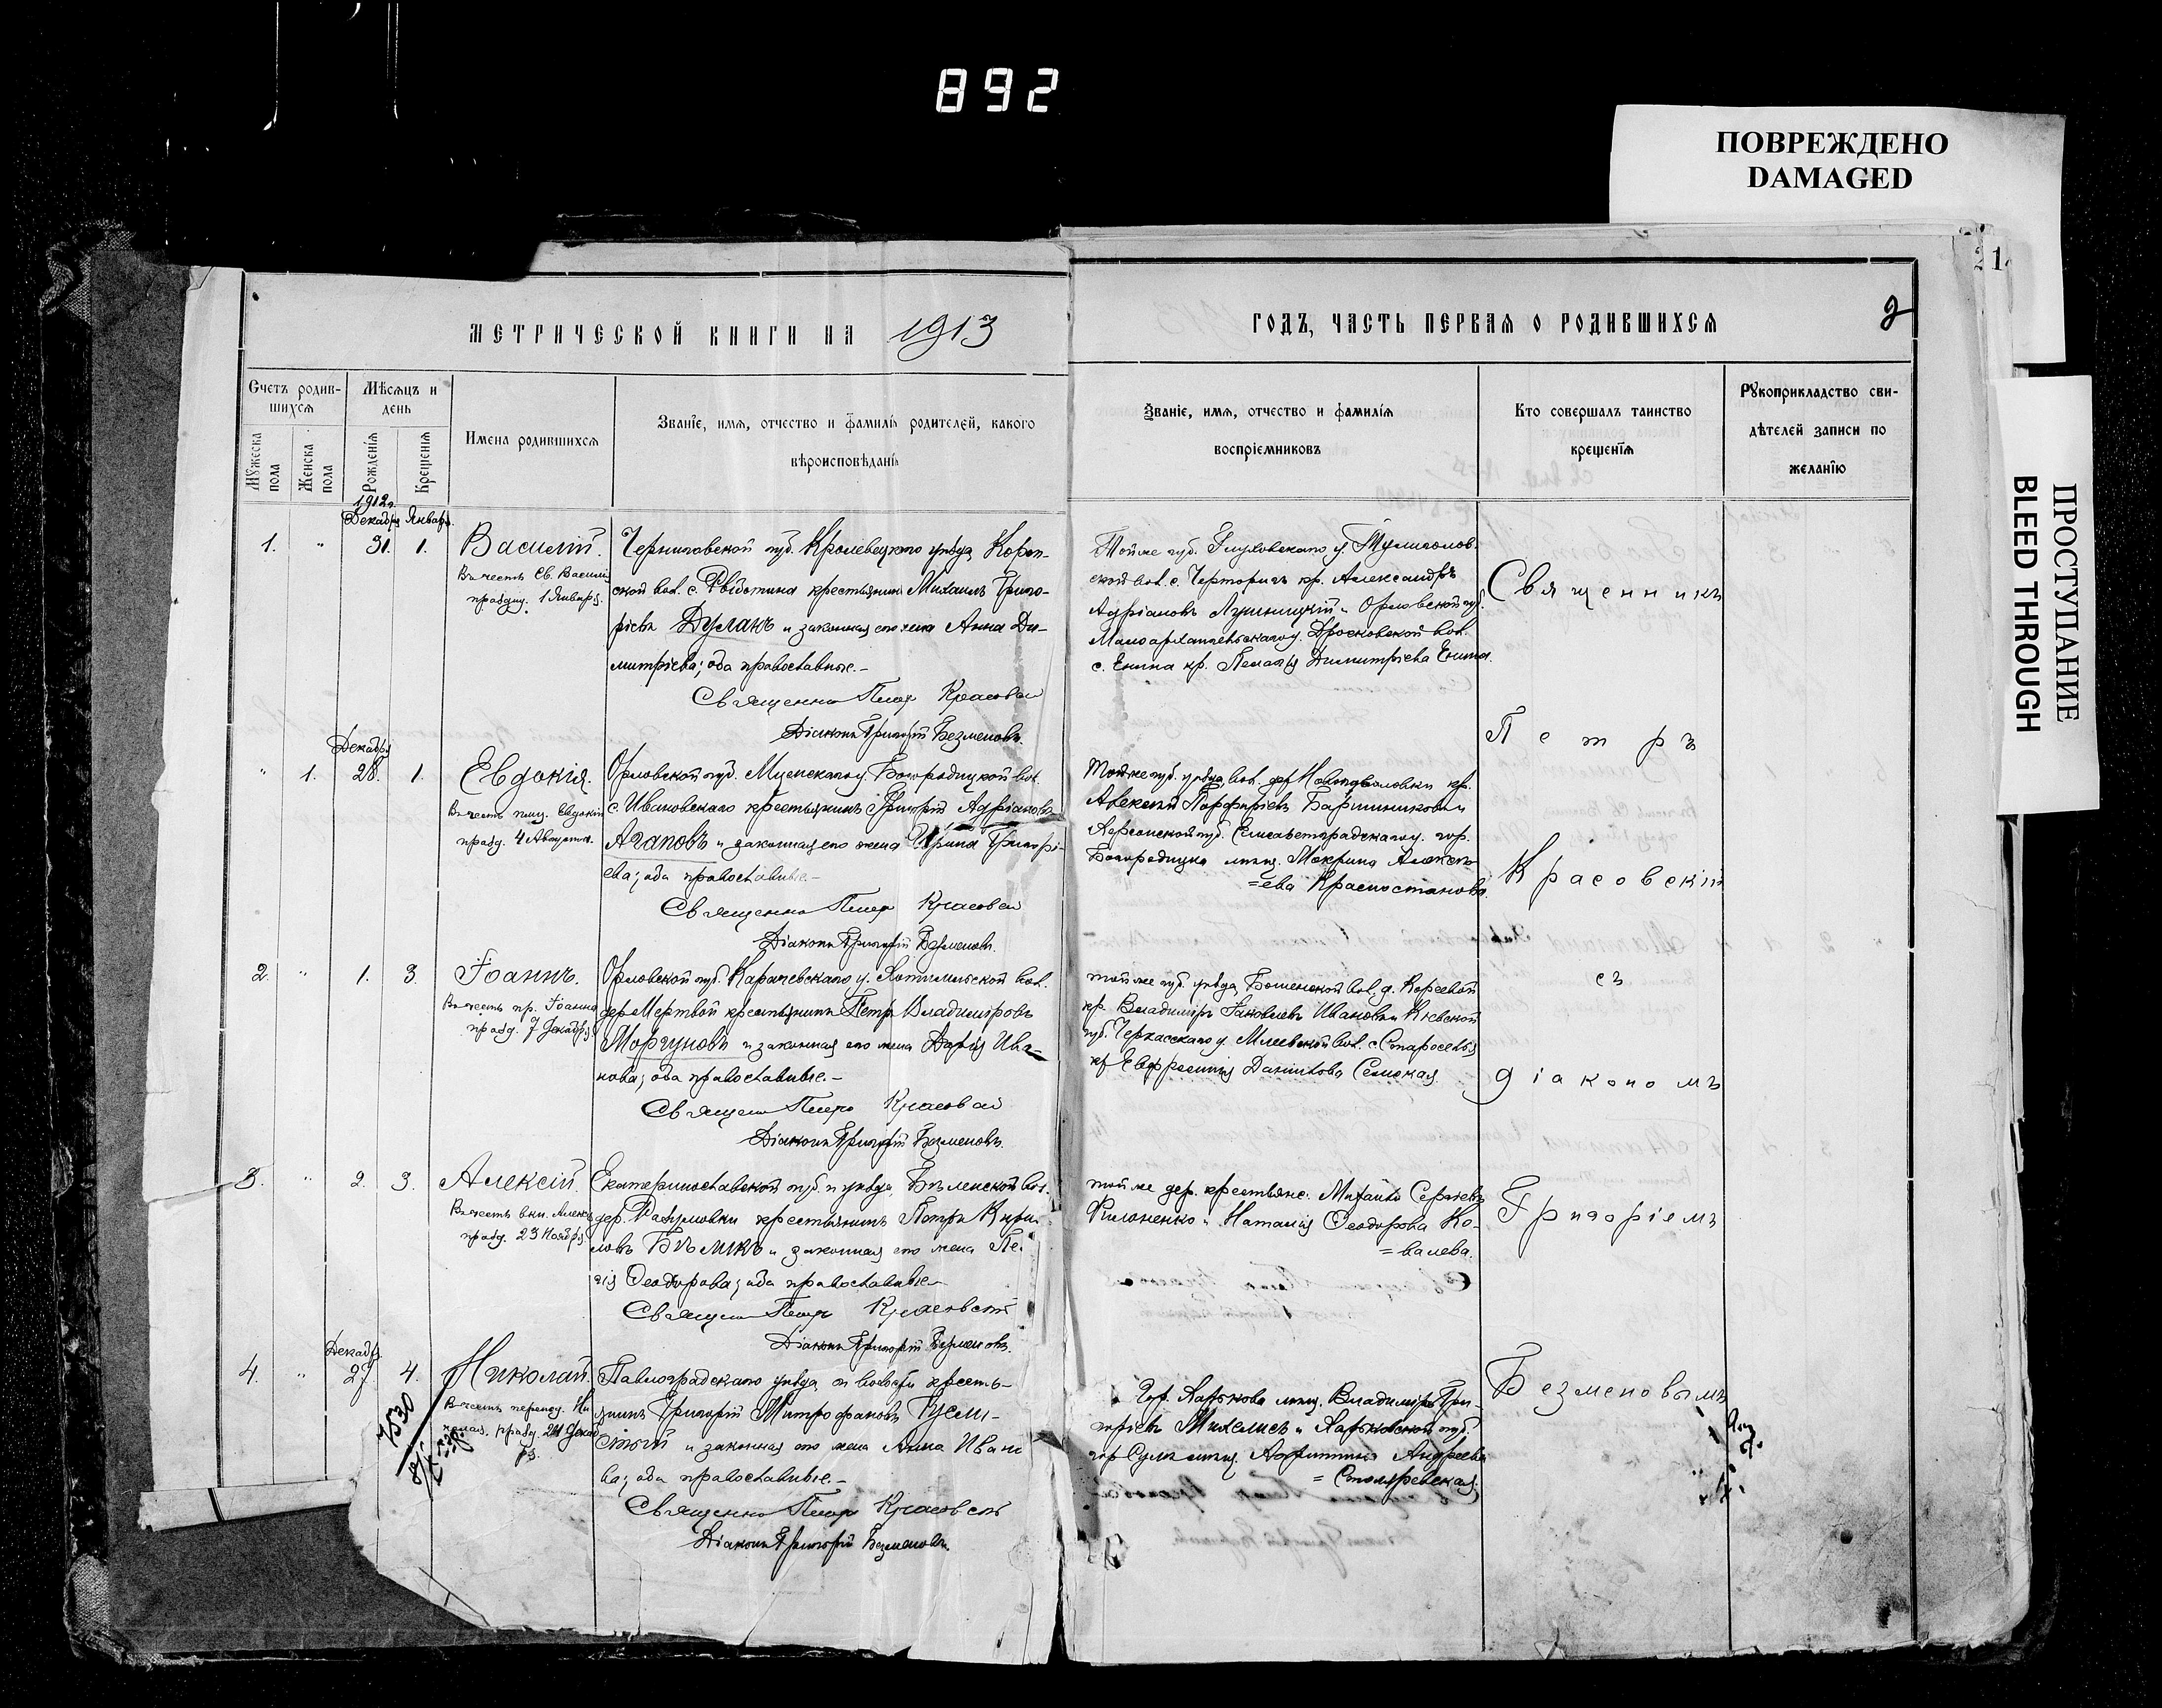 892
ПОВРЕЖДЕНО
DAMAGED
ПРОСТУПАНИЕ
BLEED THROUGH
21
МЕТРИЧЕСКОЙ КНИГИ НА 1913
ГОДЪ, ЧАСТЬ ПЕРВАЯ О РОДИВШИХСЯ
2
Счетъ родив-
шихся
Мужеска пола
Женска пола
Мѣсяцъ и
день
Рожденія
Крещенія
Имена родившихся
Званіе, имя, отчество и фамилія родителей, какого
вѣроисповѣданія
Званіе, имя, отчество и фамилія
воспріемниковъ
Кто совершалъ таинство
крещенія
Рукоприкладство сви-
дѣтелей записи по
желанію
1912г.
Декабря Января
1. " 31. 1. Василій.
Въ честь Св. Василія
праздн. 1 Января.
Черниговской губ. Кролевецкаго уѣзда, Короп-
ской вол. с. Рождотина крестьянинъ Михаилъ Григо-
рьевъ Дуланъ и законная его жена Анна Ди-
митріева; оба православные.-
Священникъ Петръ Красовскій
Діаконъ Григорій Безменовъ.
Той же губ. Глуховскаго у. Тулиголов-
ской вол. с. Черториги кр. Александръ
Адріановъ Лушницкій и Орловской губ.
Малоархангельскаго у. Дросковской вол.
с. Енина кр. Пелагія Димитріева Енина.
Декабря
" 1. 28. 1. Евдокія.
Въ честь прмц. Евдокіи
празд. 4 Августа.
Орловской губ. Мценскаго у. Богородицкой вол.
с. Ивановскаго крестьянинъ Григорій Адріановъ
Агаповъ и законная его жена Ирина Григорі-
ева; оба православные.-
Священникъ Петръ Красовскій
Діаконъ Григорій Безменовъ.
Той же губ. уѣзда, вол. др.
Алексій Порфирьевъ Барышниковъ и
Херсонской губ. Елисаветградскаго у. гор.
мѣщ. Макрина Алексѣ-
=ева
2. " 1. 3. Іоаннъ.
Въ честь пр. Іоанна
празд. 7 Декабря
Орловской губ. Карачевскаго у. Хотимльской вол.
дер. Мертвой крестьянинъ Петръ Владиміровъ
Моргуновъ и законная его жена Дарія Ива-
нова; оба православные.-
Священникъ Петръ Красовскій
Діаконъ Григорій Безменовъ.
той же губ. уѣзда, вол. д.
кр. Владиміръ Іаковлевъ Ивановъ и Кіевской
губ. Черкасскаго у. Мліевской вол. с. Староселья
кр. Евфросинія Данилова
3. " 2. 3. Алексій.
Въ честь вкн. Алекс.
празд. 23 Ноября
Екатеринославской губ. и уѣзда, Бѣленской вол.
дер. Разумовки крестьянинъ Петръ Кири-
ловъ Бѣликъ и законная его жена Пе-
Ѳеодорова; оба православные
Священникъ Петръ Красовскій
Діаконъ Григорій Безменовъ.
той же дер. крестьяне: Михаилъ Сергіевъ
Филоненко и Наталія Ѳеодорова Ко-
=валева.
Декабря
4. " 27. 4. Николай.
празд. 24 Декаб
ря.
7530
Павлоградскаго уѣзда, крестья-
нинъ Григорій Митрофановъ Гусели-
стый и законная его жена Анна Ивано
ва; оба православные.-
Священникъ Петръ Красовскій
Діаконъ Григорій Безменовъ.
Гор. Харькова мѣщ. Владиміръ Гри-
горьевъ Михелисъ и Харьковской губ.
гор. Сумъ мѣщ. Андреева
=Столяревская.
Священникъ
Петръ
Красовскій
съ
діакономъ
Григоріемъ
Безменовымъ